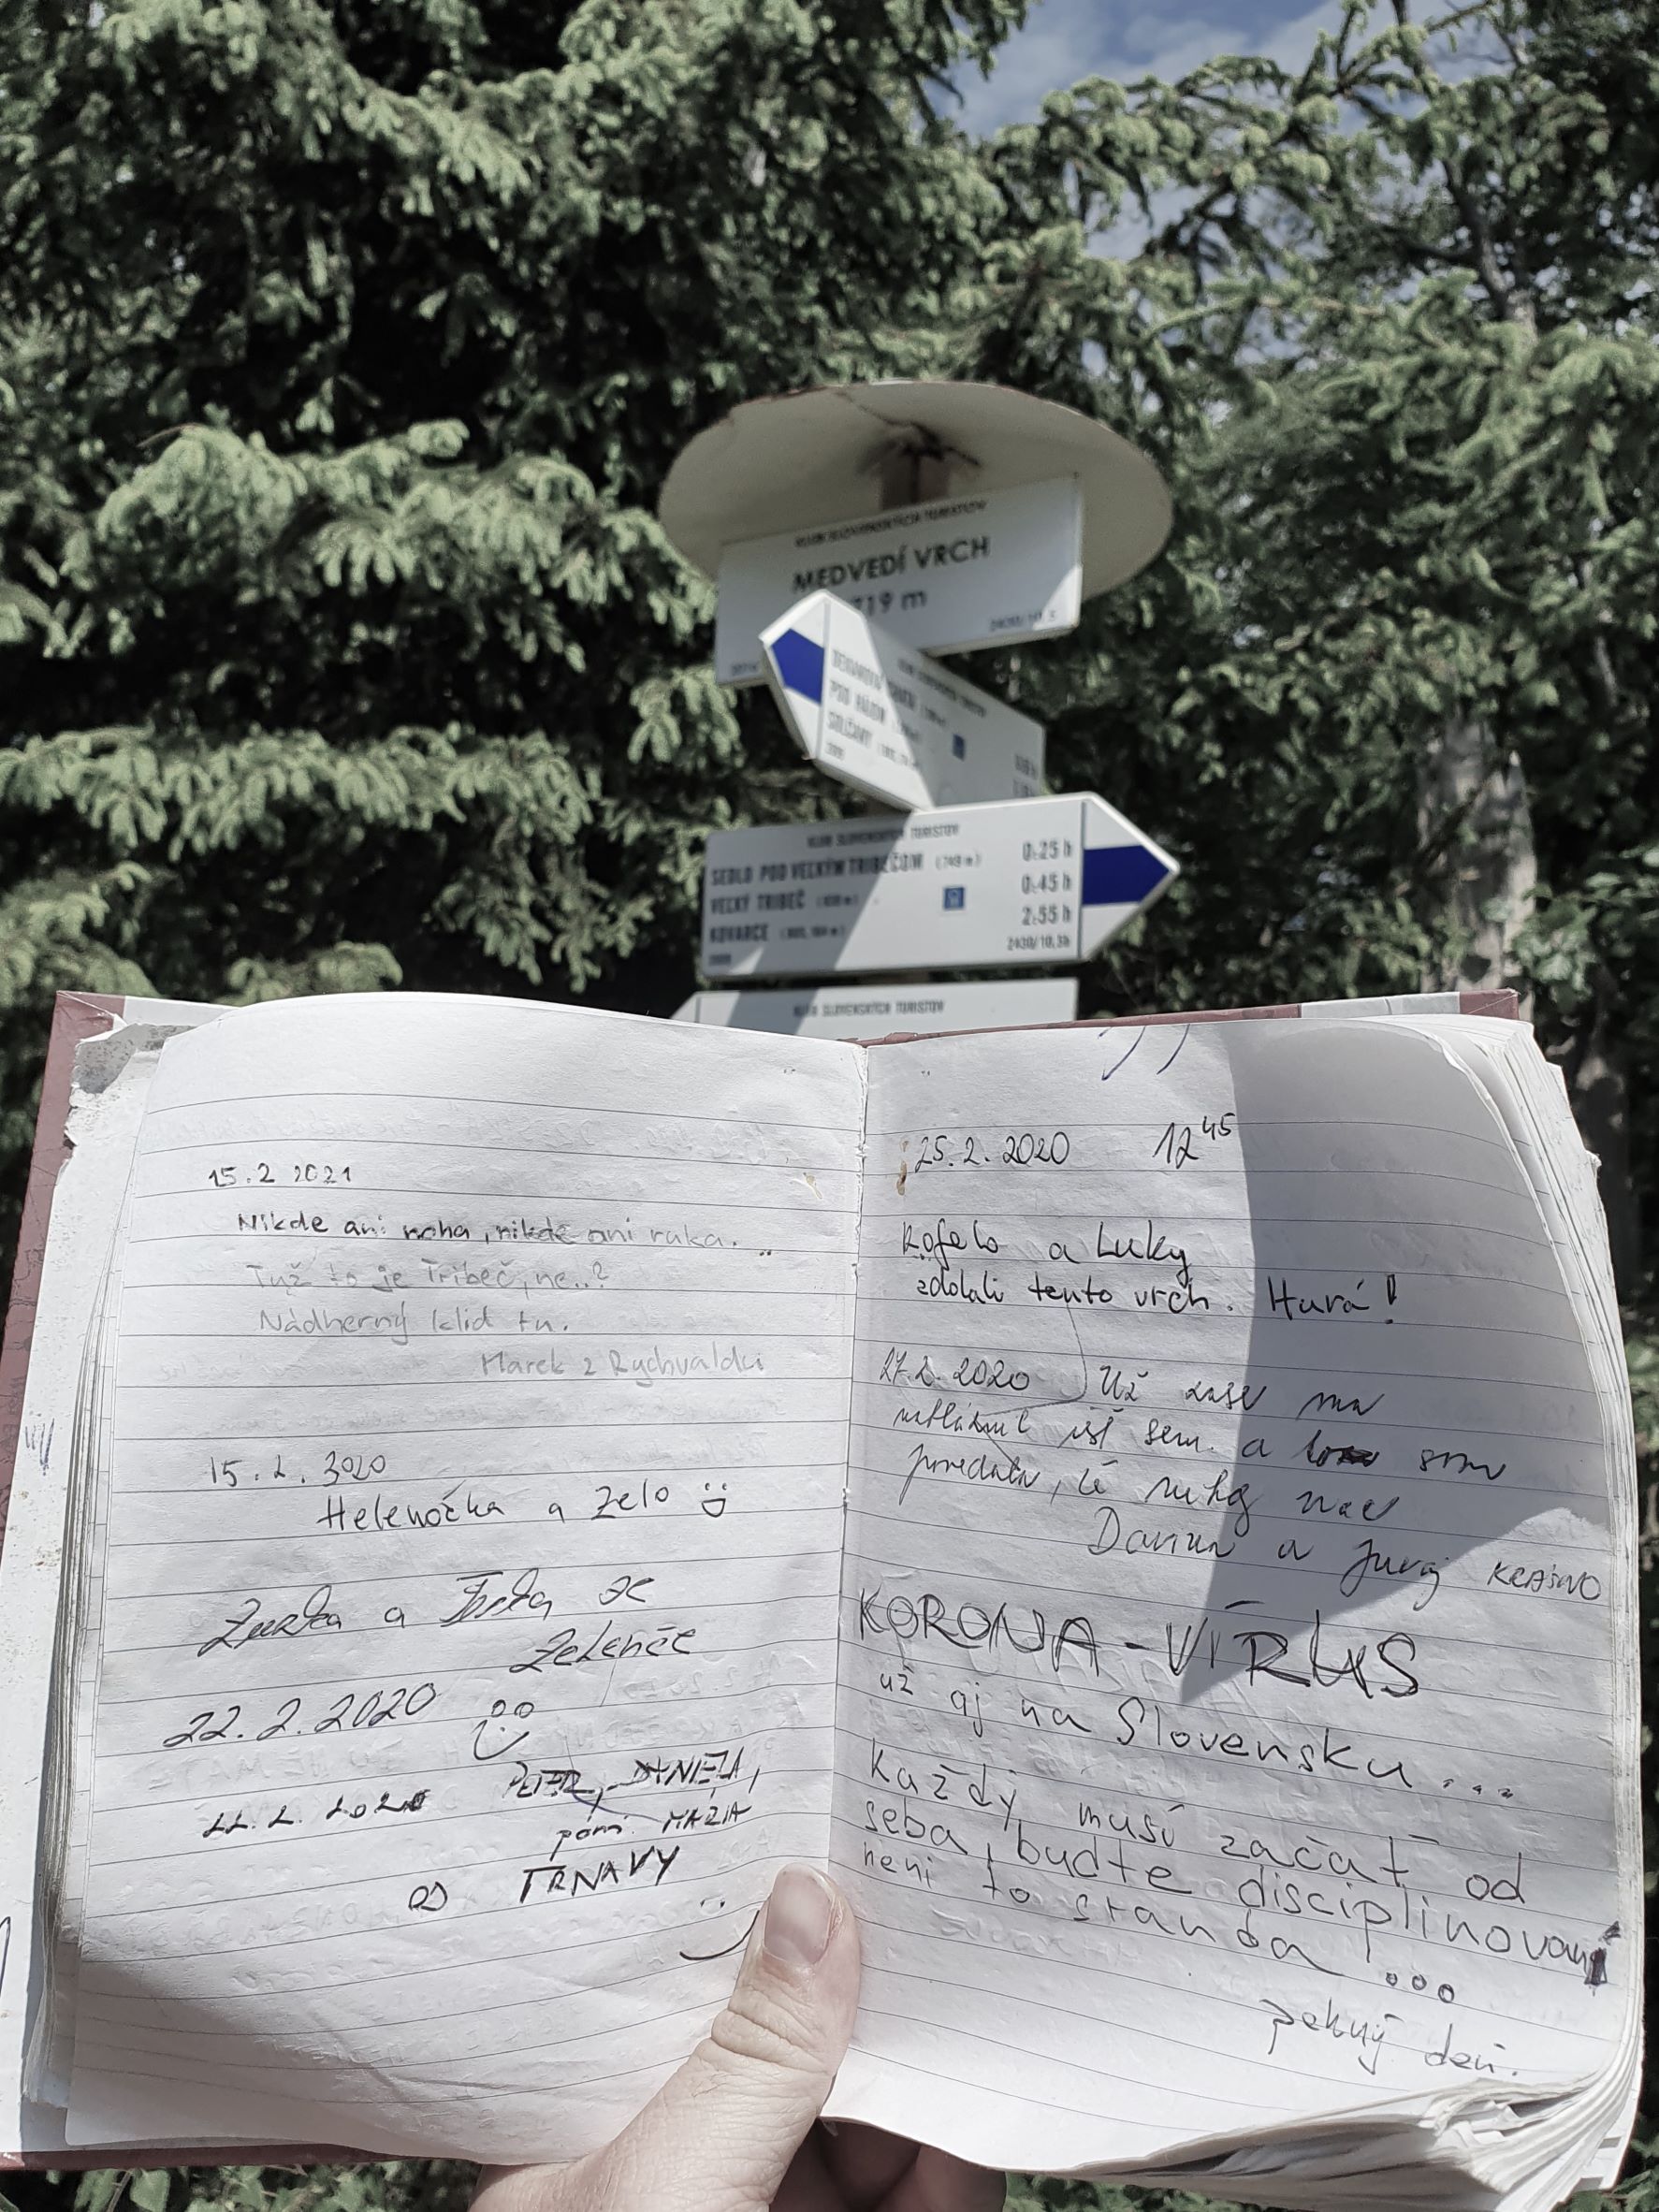 KLUB SLOVENSKÝCH TURISTOV
MEDVEDÍ VRCH
719 m
POD HÁJOM
SOLČANY
KLUB SLOVENSKÝCH TURISTOV
SEDLO POD VEĽKÝM TRIBEČOM (749 m) 0:25 h
VEĽKÝ TRIBEČ 0:45 h
KOVARCE 2:55 h
2430/10,3h
KLUB SLOVENSKÝCH TURISTOV
15.2 2021
Nikde ani noha, nikde ani ruka.
Tuž to je Tribeč, ne..?
Nádherný klid tu.
Marek z Rychvaldu
15.2. 3020
Helenočka a Zelo
Zuzka a
Zeleneč
22.2.2020
22.2.2020 PETER, DANIELA,
pani MARIA
OD TRNAVY
25.2.2020 12 45
Rofelo a Luky
zdolali tento vrch. Hurá!
27.2.2020 Už zase ma
išť sem a som
povedala, že
a Juraj KRÁSNO
KORONA-VÍRUS
už aj na Slovensku...
Každý musí začať od
seba, buďte disciplinovaní
neni to sranda...
pekný deň.